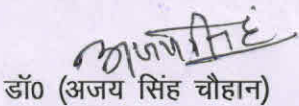 अजय सिंह
डॉ0 (अजय सिंह चौहान)